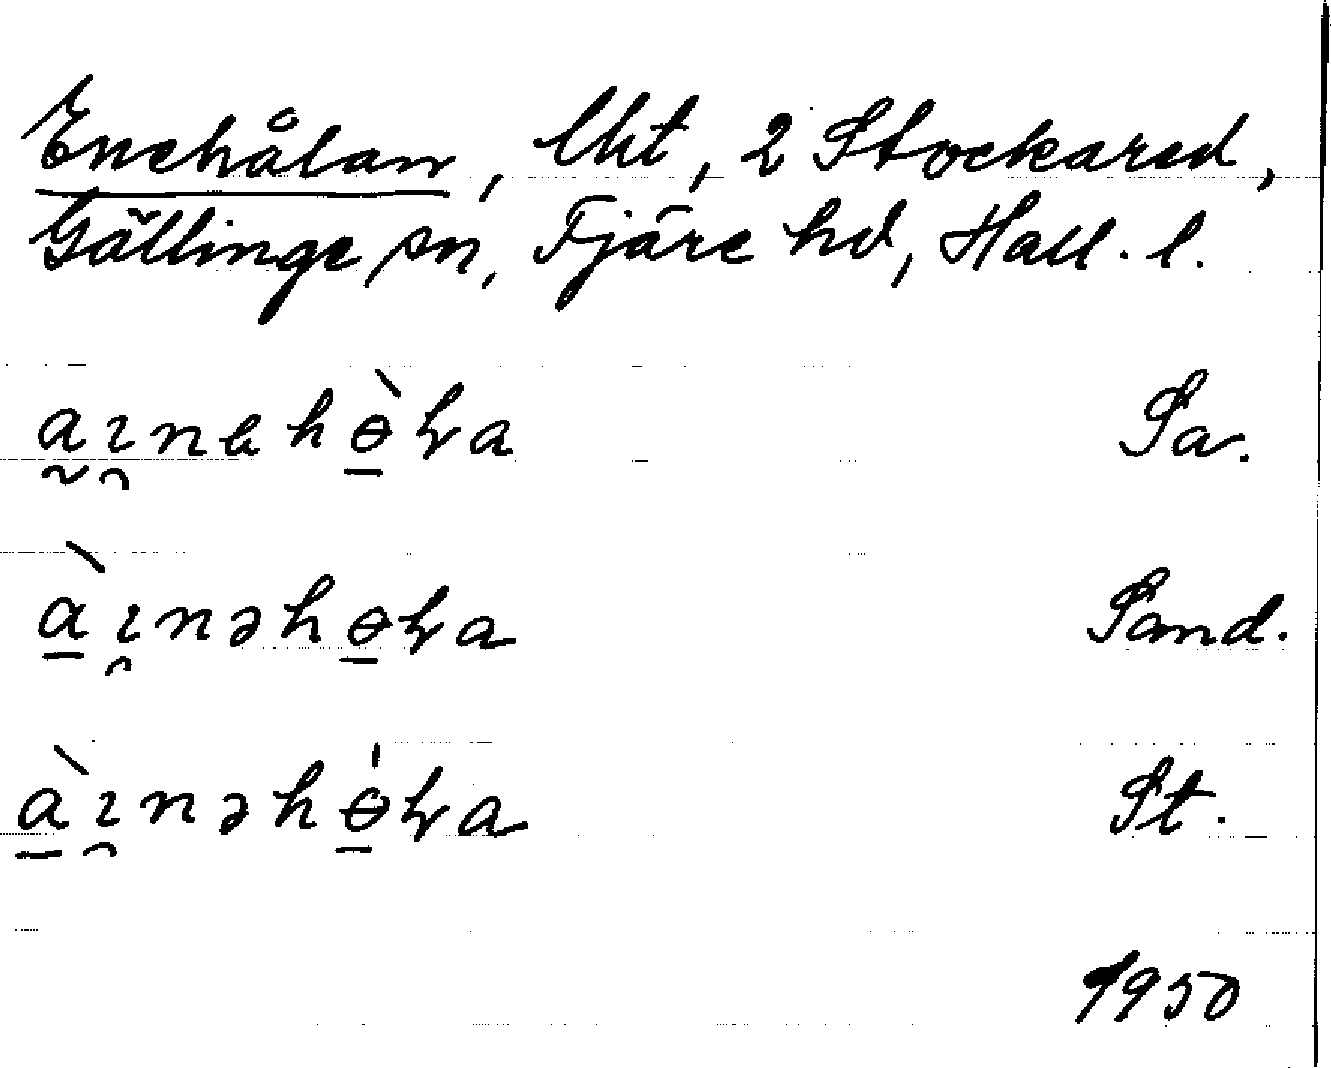 Enehålan, lht, 2 Stockared,
Gällinge sn, Fjäre hd, Hall. l.
a̰ı̯nɐhɵ̱̀ɽa Sa.
à̱ı̯nəhɵ̱ɽa Sand.
à̱ı̯nəhɵ̱̍ɽa St.
1950